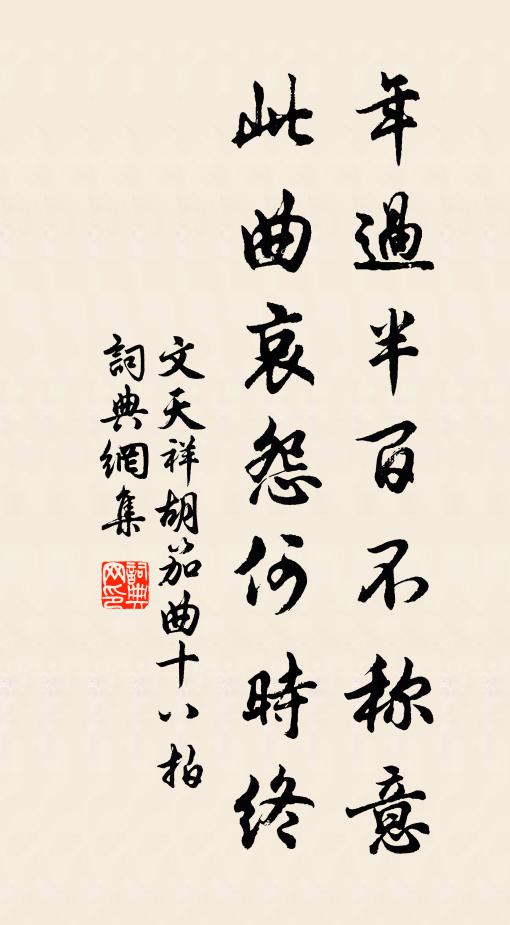 年過半百不称意
此曲哀怨何時終
文天祥胡笳曲十八拍
詞典網集
詞典网印